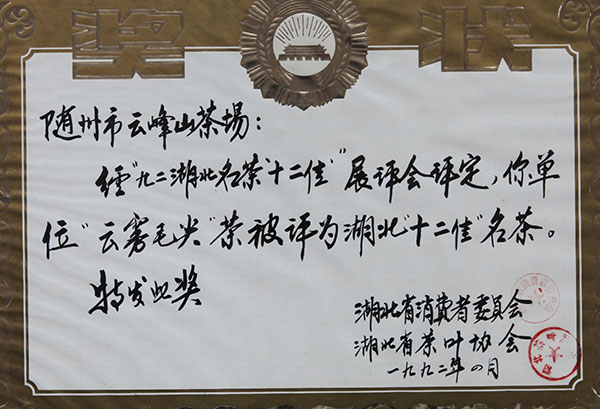 奖状
随州市云峰山茶場：
经“九二湖北名茶‘十二佳’”展评会评定，你单
位“云雾毛尖”茶被评为湖北“十二佳”名茶。
特发此奖
湖北省消费者委员会
湖北省茶叶协会
一九九二年四月